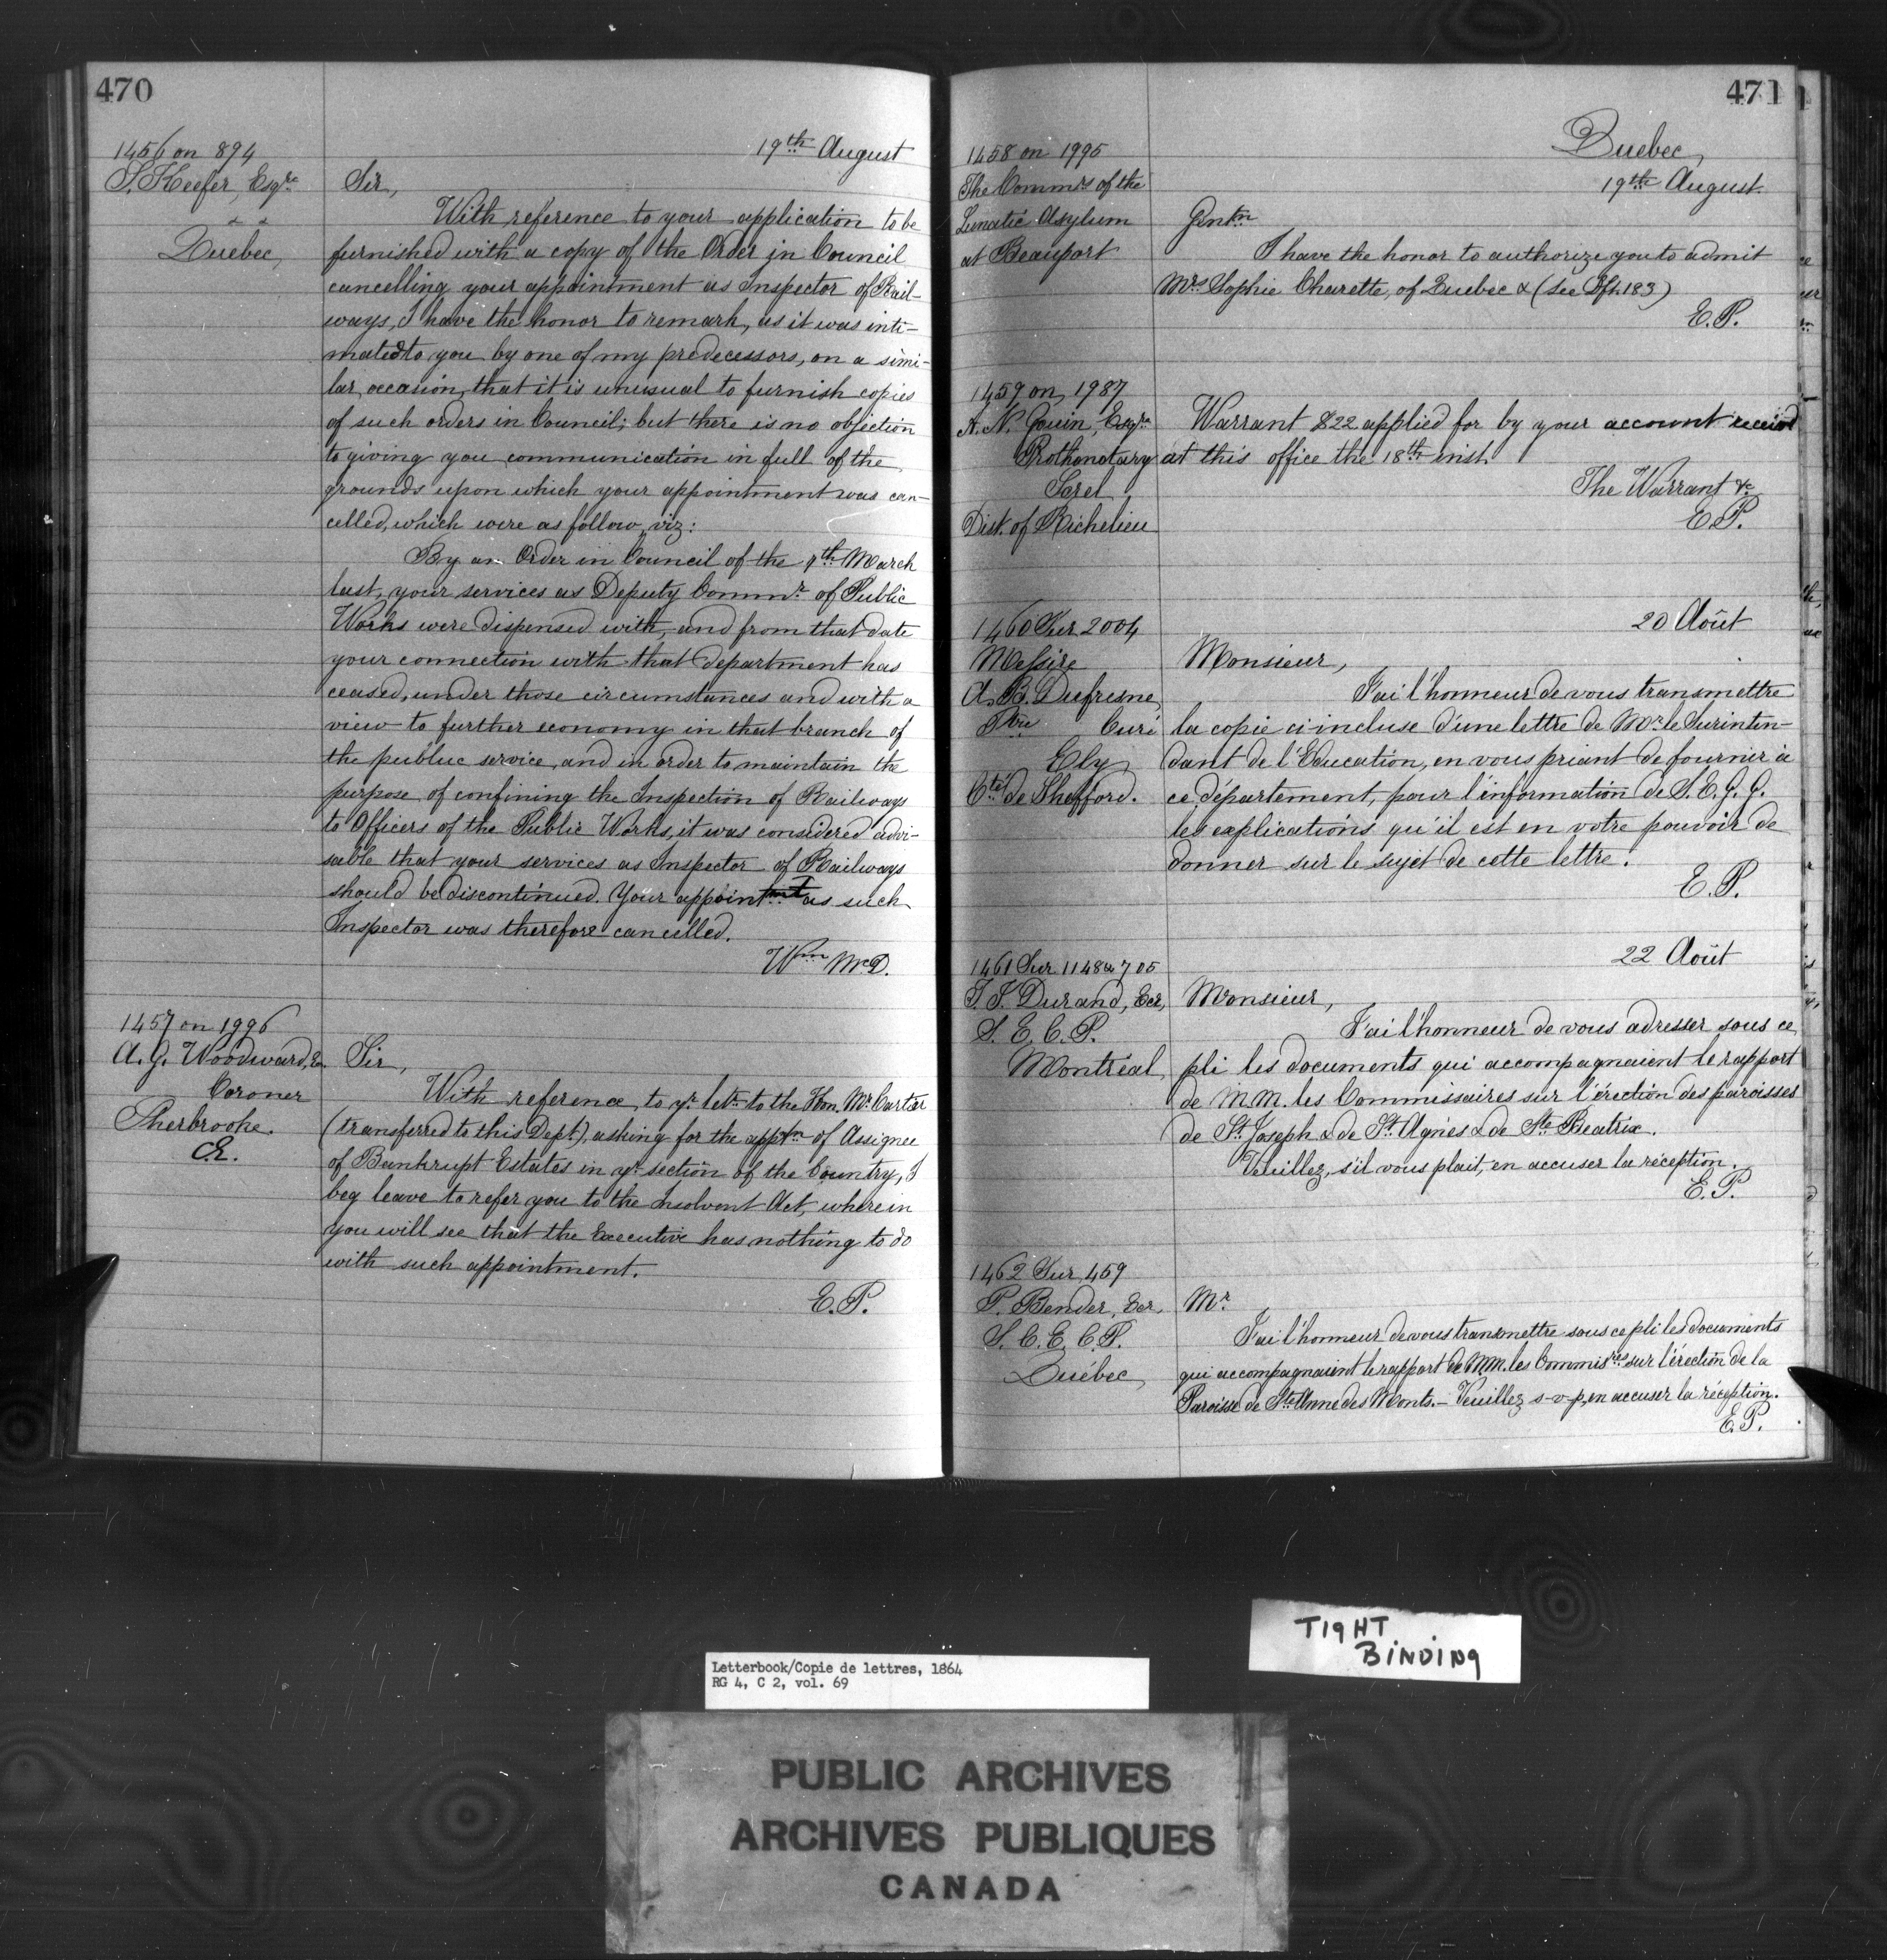 470
1456 on 894
S. Keefer, Esqre
Quebec,
19th August
Sir,
With reference to your application to be
furnished with a copy of the Order in Council
cancelling your appointment as Inspector of Rail-
ways, I have the honor to remark, as it was inti-
mated to you by one of my predecessors, on a simi-
lar occasion, that it is unusual to furnish copies
of such orders in Council; but there is no objection
to giving you communication in full of the
grounds upon which your appointment was can-
celled, which were as follow, viz:
By an Order in Council of the 9th March
last, your services as Deputy Commr. of Public
Works were dispensed with, and from that date
your connection with that department has
ceased, under those circumstances and with a
view to further economy in that branch of
the public service, and in order to maintain the
purpose of confining the Inspection of Railways
to Officers of the Public Works, it was considered advi-
sable that your services as Inspector of Railways
should be discontinued. Your appointmt as such
Inspector was therefore cancelled.
Wm McD.
1457 on 1996
A. G. Woodward, Er.
Coroner
Sherbrooke.
C.E.
Sir,
With reference to yr. letr. to the Hon. Mr. Cartier
(transferred to this Dept.), asking for the apptn of Assignee
of Bankrupt Estates in yr. section of the Country, I
beg leave to refer you to the Insolvent Act, wherein
you will see that the Executive has nothing to do
with such appointment.
E.P.
471
Quebec,
1458 on 1995
The Commrs of the
Lunatic Asylum
at Beauport
19th August.
Gentn
I have the honor to authorize you to admit
Mrs Sophie Charette, of Quebec & (See Oft. 183)
E.P.
1459 on 1987
A. N. Gouin, Esqre
Prothonotary
Sorel
Dist. of Richelieu
Warrant $22 applied for by your account receivd
at this office the 18th inst.
The Warrant &c
E.P.
1460 Sur 2004
Messire
A. B. Dufresne,
Ptre Curé
Ely
Cté de Shefford.
20 Août
Monsieur,
J'ai l'honneur de vous transmettre
la copie ci-incluse d'une lettre de Mr. le Surinten-
dant de l'Education, en vous priant de fournir à
ce département, pour l'information de S. E. G. G.
les explications qu'il est en votre pouvoir de
donner sur le sujet de cette lettre.
E.P.
1461 Sur 1148 & 705
F. J. Durand, Ecr,
S. E. C. P.
Montréal,
22 Août
Monsieur,
J'ai l'honneur de vous adresser sous ce
pli les documents qui accompagnaient le rapport
de M.M. les Commissaires sur l'érection des paroisses
de St. Joseph & de St. Agnès & de Ste Beatrix.
Veuillez, s'il vous plait, en accuser la réception.
E.P.
1462 Sur 459
P. Bender, Ecr,
S. C. E. C. P.
Québec,
Mr.
J'ai l'honneur de vous transmettre sous ce pli les documents
qui accompagnaient le rapport de MM. les Commisres sur l'érection de la
Paroisse de Ste Anne des Monts. - Veuillez s-v-p, en accuser la réception.
E.P.
TIGHT
BINDING
Letterbook/Copie de lettres, 1864
RG 4, C 2, vol. 69
PUBLIC ARCHIVES
ARCHIVES PUBLIQUES
CANADA